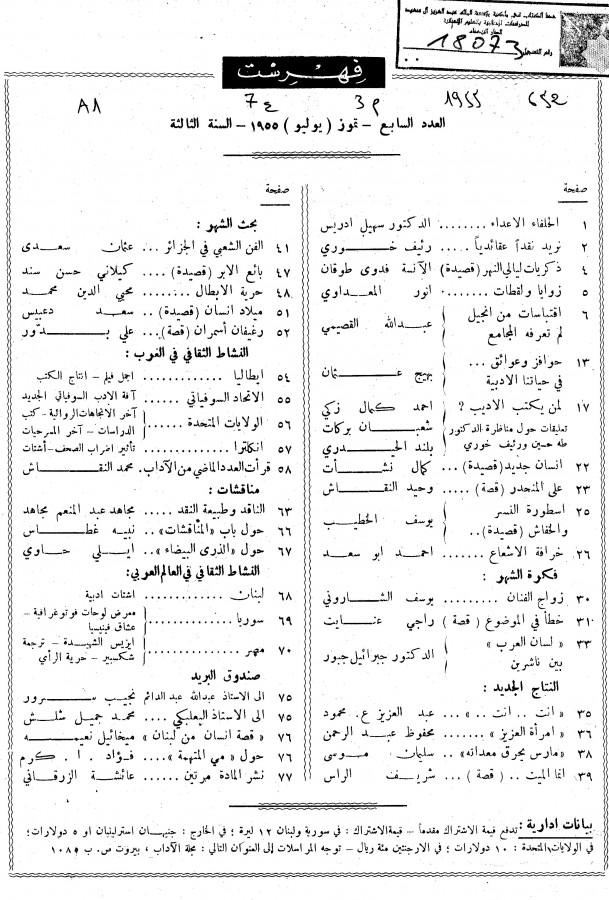 18073
فهرست
٦٥٢ 1955 م3 ع7 A1
العدد السابع - تموز ( يوليو ) ١٩٥٥ - السنة الثالثة
صفحة
١ الحلفاء الاعداء ........ الدكتور سهيل ادريس
٢ نريد نقداً عقائدياً ..... رئيف خوري
٤ ذكريات ليالي النهر (قصيدة) الآنسة فدوى طوقان
٥ زوايا ولقطات ........ انور المعداوي
٦ اقتباسات من انجيل
لم تعرفه المجامع } عبدالله القصيمي
١٣ حوافز وعوائق ...
في حياتنا الادبية } بهيج عثمان
١٧ لمن يكتب الاديب ? احمد كمال زكي
تعليقات حول مناظرة الدكتور شعبان بركات
طه حسين ورئيف خوري بلند الحيدري
٢٢ انسان جديد (قصيدة)... كمال نشأت
٢٣ على المنحدر ( قصة ) ... وحيد النقاش
٢٥ اسطورة النسر
والخفاش (قصيدة).. } يوسف الخطيب
٢٦ خرافة الاشعاع ........ احمد ابو سعد
فكرة الشهر :
٣٠ زواج الفنان ........ يوسف الشاروني
٣١ خطأ في الموضوع ( قصة ) راجي عنايت
٣٣ « لسان العرب »
بين ناشرين } الدكتور جبرائيل جبور
النتاج الجديد :
٣٥ « انت .. انت .. » ... عبد العزيز ع. محمود
٣٦ « امرأة العزيز » ....... محفوظ عبد الرحمن
٣٨ «مارس يحرق معداته» .. سليمان موسى
٣٩ انما الميت .. ( قصة ) ... شريف الراس
صفحة
بحث الشهر :
٤١ الفن الشعبي في الجزائر ... عثمان سعدى
٤٧ بائع الابر (قصيدة).... كيلاني حسن سند
٤٨ حرية الابطال ........ محيي الدين محمد
٥١ ميلاد انسان (قصيدة) .. سعد دعبيس
٥٢ رغيفان أسمران (قصة).. علي بدّور
النشاط الثقافي في الغرب :
٥٤ ايطاليا ............ اجمل فيلم - انتاج الكتب
٥٥ الاتحاد السوفياتي ..... آفة الادب السوفياتي الجديد
٥٦ الولايات المتحدة ...... آخر الاتجاهات الروائية - كتب
الدراسات - آخر المسرحيات
٥٧ انكلترا ............ تأثير اضراب الصحف - أشتات
٥٨ قرأت العدد الماضي من الآداب. محمد النقاش
مناقشات :
٦٣ الناقد وطبيعة النقد .... مجاهد عبد المنعم مجاهد
٦٦ حول باب «المناقشات» ... نبيه غطاس
٦٧ حول «الذرى البيضاء».. ايلي حاوي
النشاط الثقافي في العالم العربي:
٦٨ لبنان ............ اشتات ادبية
٦٩ سوريا ............ معرض لوحات فوتوغرافية -
عشاق فينيسيا
٧٠ مصر ............ ايزيس الشهيدة - ترجمة
شكسبير - حرية الرأي
صندوق البريد
٧٥ الى الاستاذ عبدالله عبد الدائم نجيب سرور
٧٥ الى الاستاذ البعلبكي.... محمد جميل شلش
٧٦ « قصة انسان من لبنان » ميخائيل نعيمه
٧٦ حول « مي المتهمة ».... فؤاد . ا . كرم
٧٧ نشر المادة مرتين ...... عائشة الزرقاني
بيانات ادارية : تدفع قيمة الاشتراك مقدماً - قيمة الاشتراك : في سورية ولبنان ١٢ ليرة ؛ في الخارج : جنيهان استرلينيان او ٥ دولارات ؛
في الولايات المتحدة : ١٠ دولارات ؛ في الارجنتين مئة ريال - توجه المراسلات إلى العنوان التالي : مجلة الآداب ، بيروت ص. ب ١٠٨٥